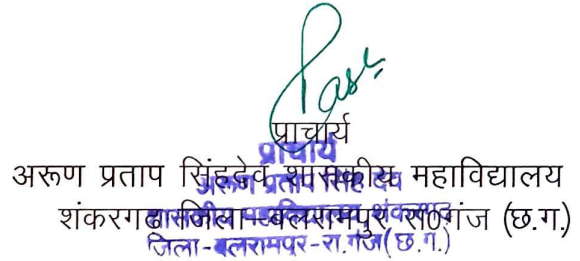 प्राचार्य
अरूण प्रताप सिंहदेव शासकीय महाविद्यालय
शंकरगढ जिला-बलरामपुर, रा0गंज (छ.ग.)
प्राचार्य
अरूण प्रताप सिंह देव
शासकीय महाविद्यालय शंकरगढ़
जिला-बलरामपुर-रा.गंज(छ.ग.)